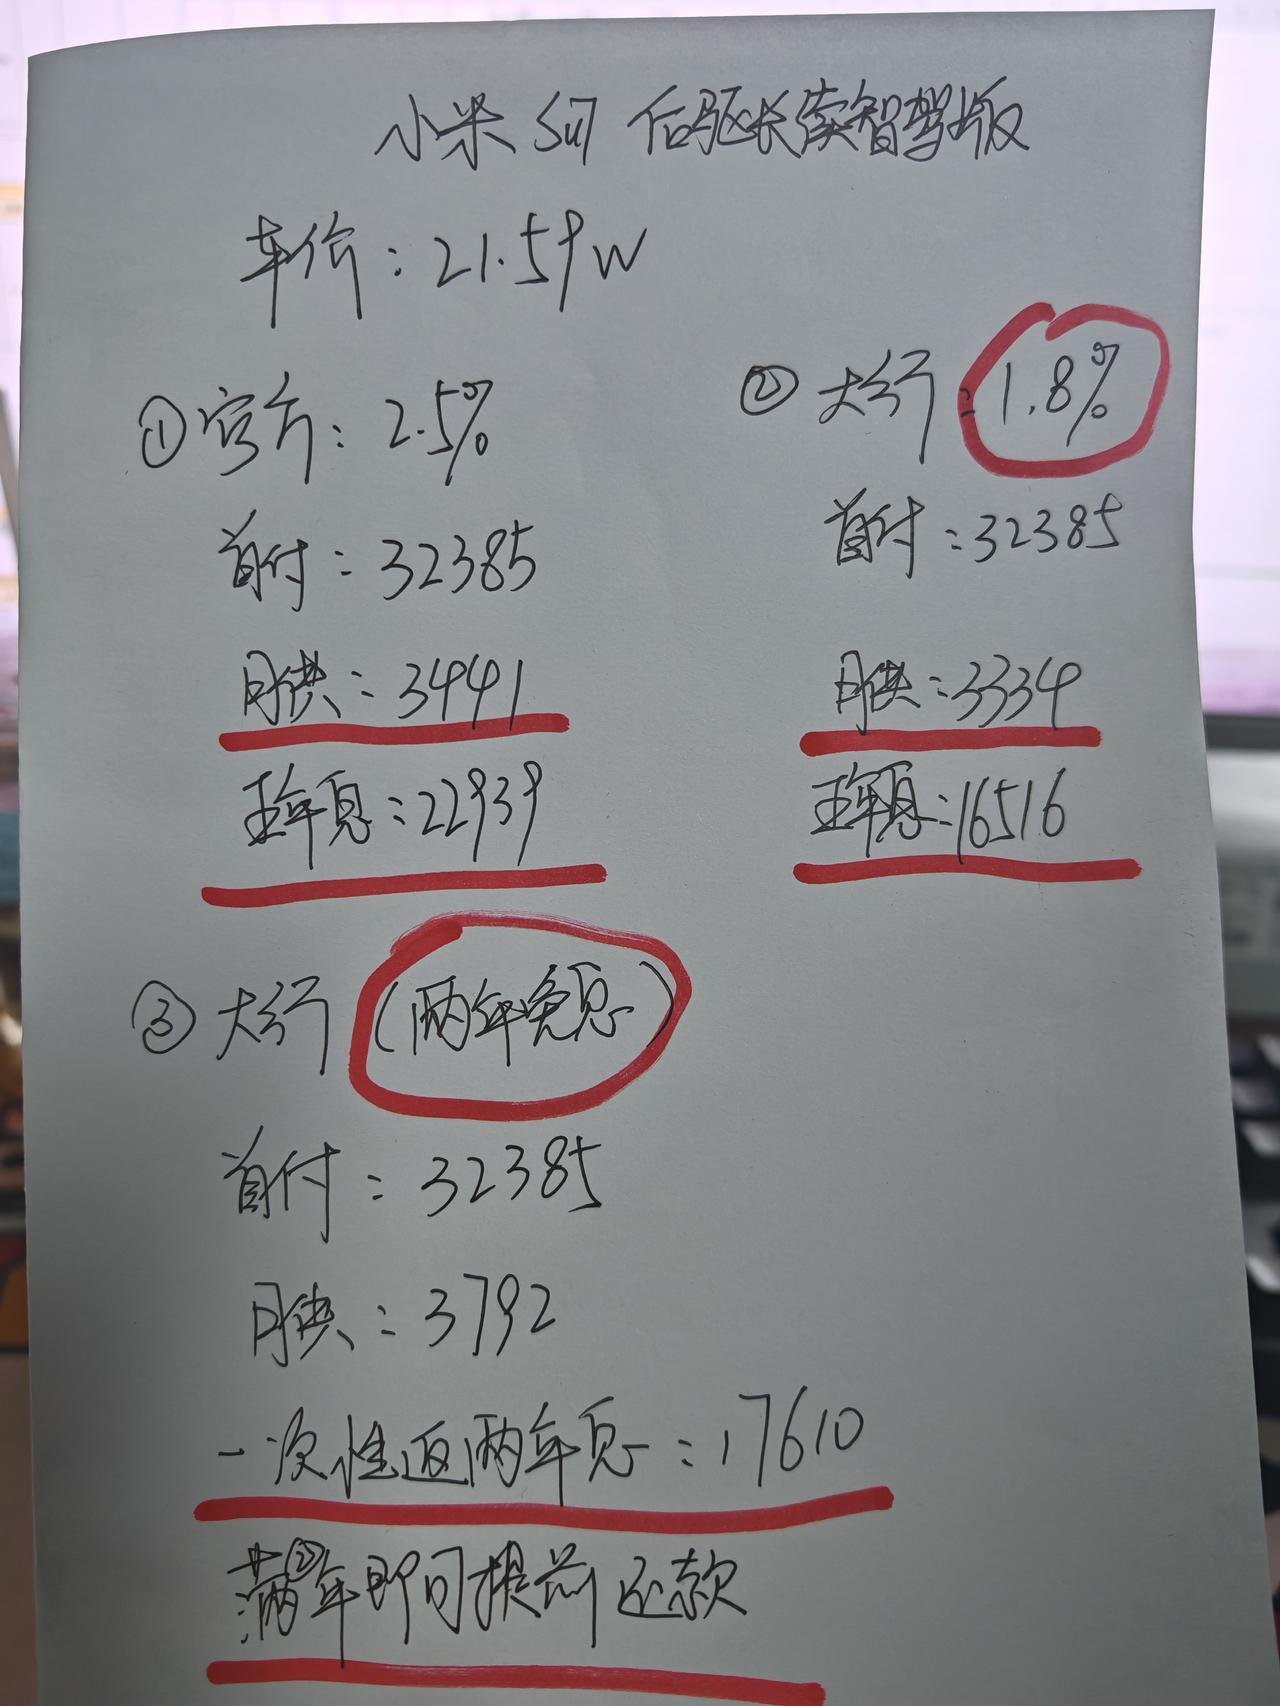 小米 SU7 后驱长续智驾版
车价：21.59W
① 官方：2.5%
首付：32385
月供：3441
五年息：22939
② 大行：1.8%
首付：32385
月供：3334
五年息：16516
③ 大行（两年免息）
首付：32385
月供：3792
一次性返两年息：17610
满②年即可提前还款